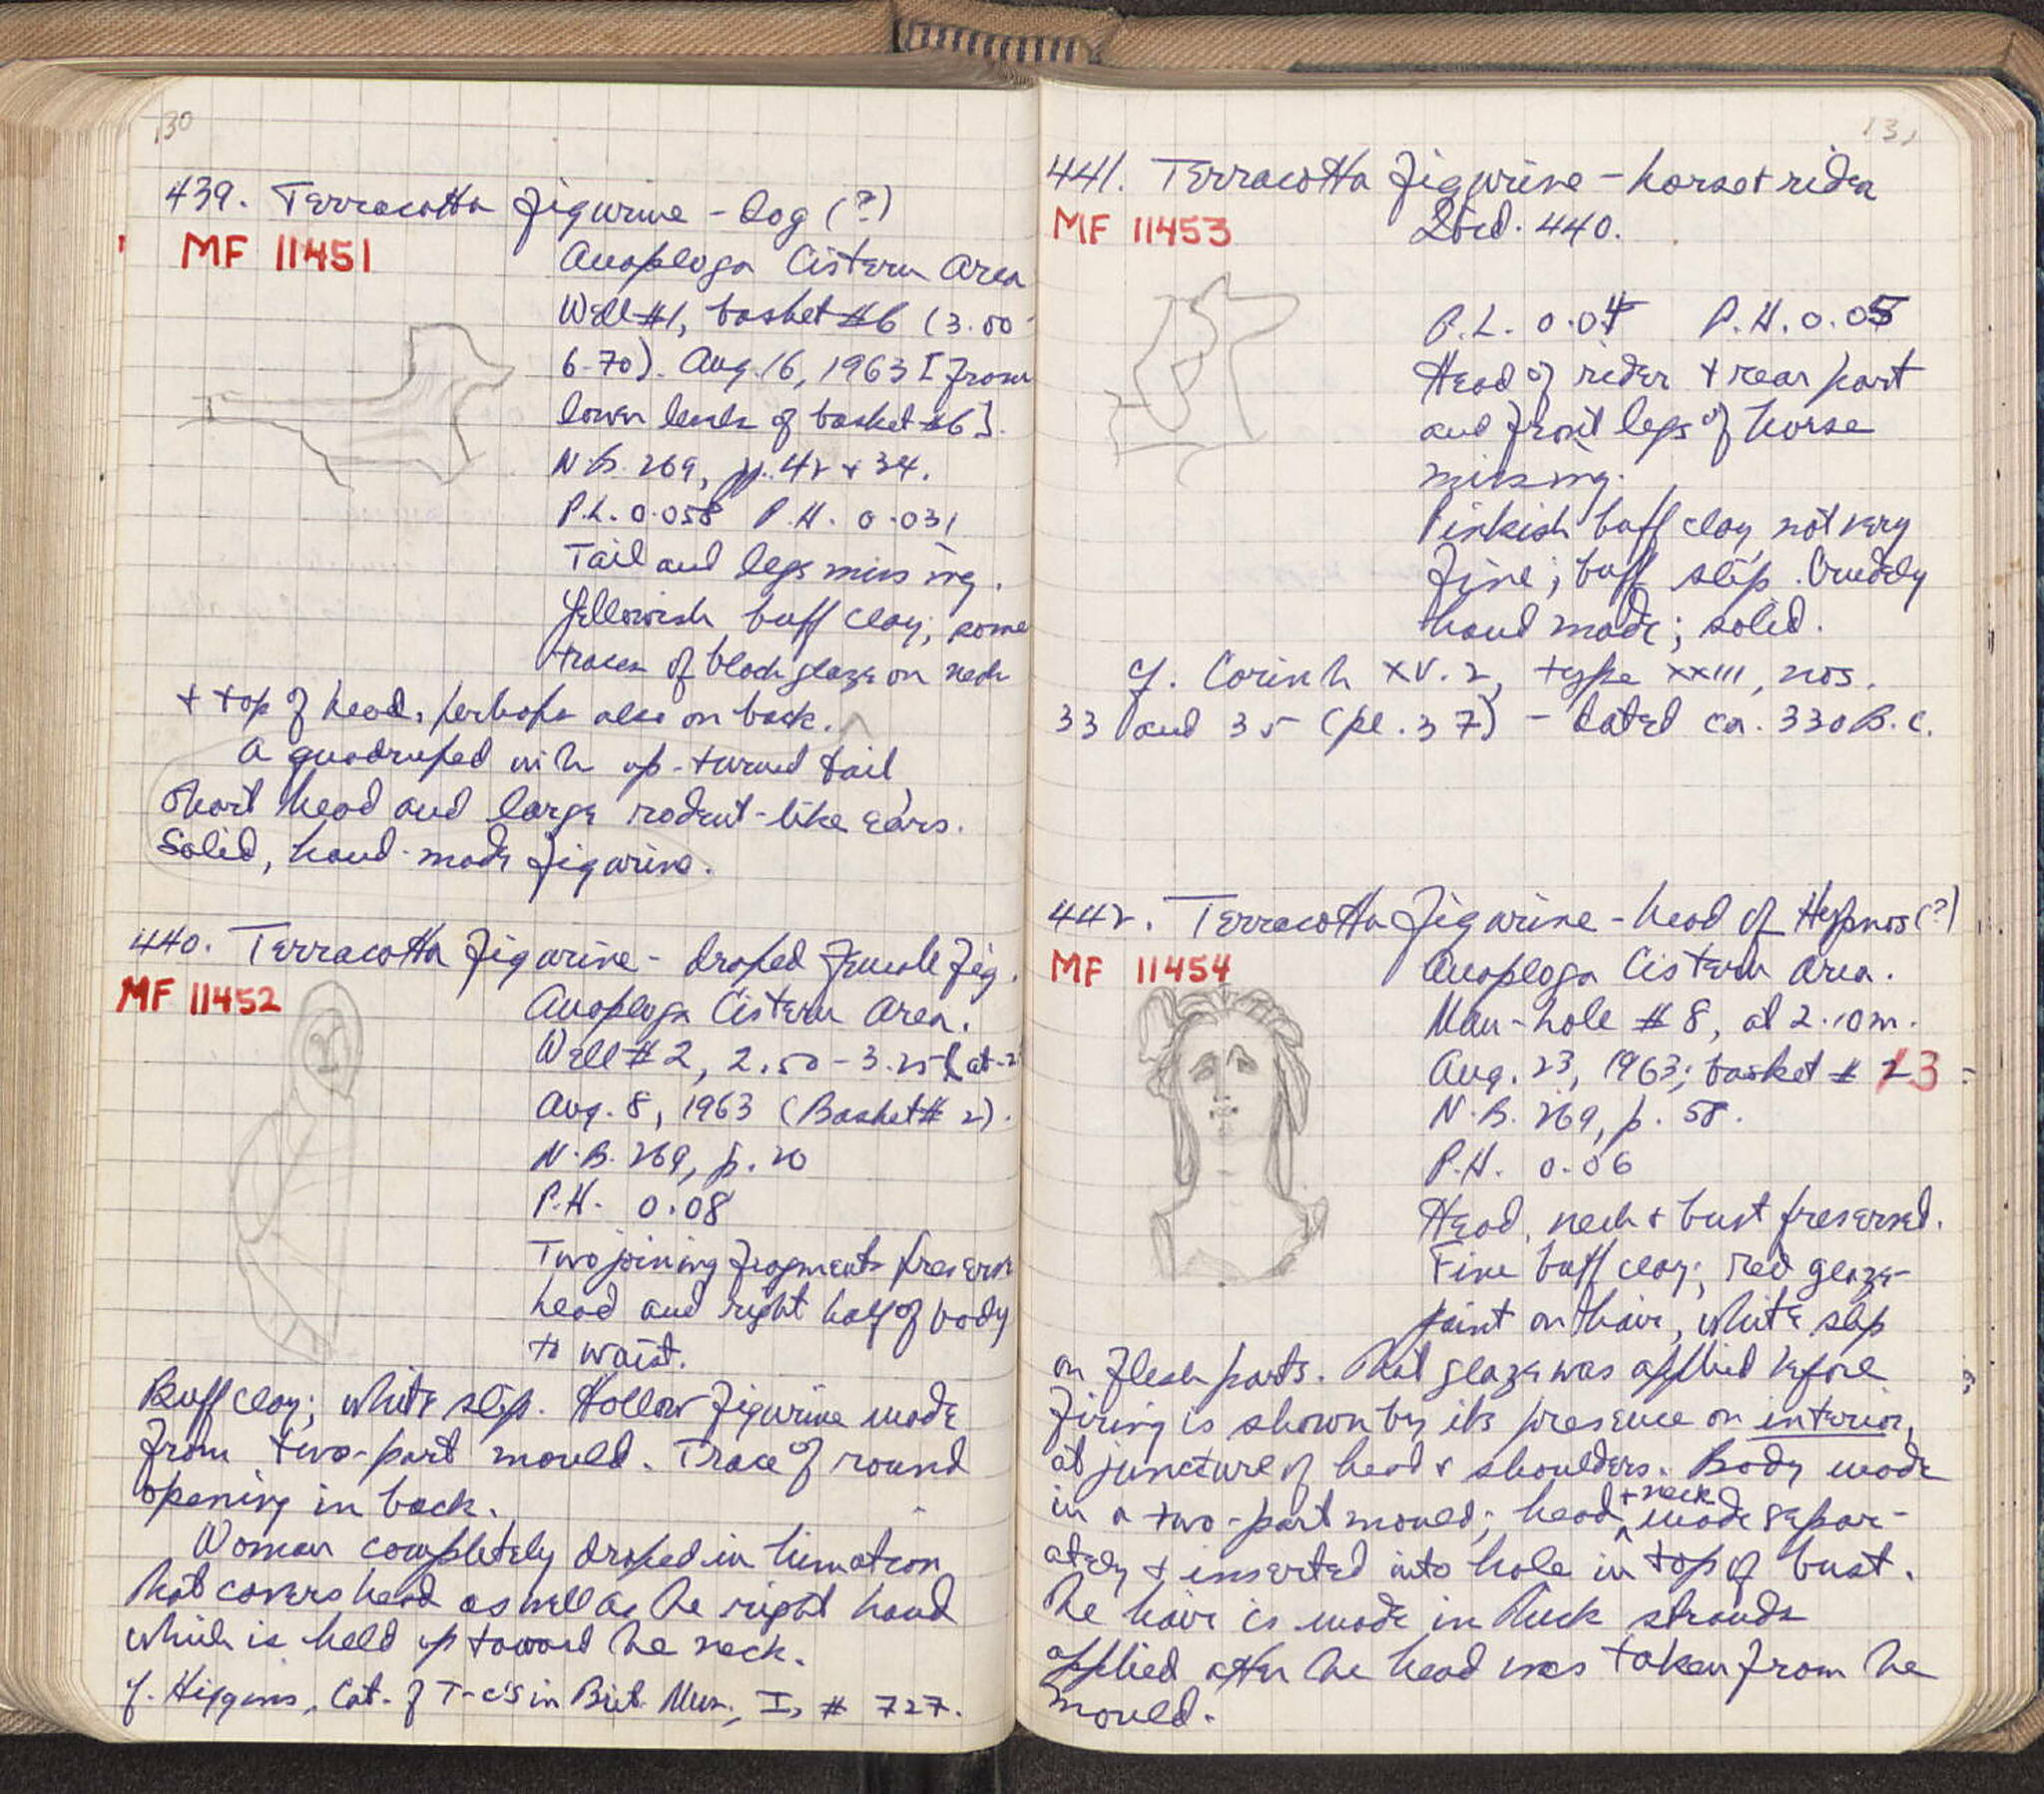 130
439. Terracotta figurine - dog (?)
MF 11451
Anaploga Cistern Area
Well #1, basket #6 (3.00-
6.70). Aug. 16, 1963 [from
lower levels of basket #6].
N.B. 269, pp. 42 + 34.
P.L. 0.058 P.H. 0.031
Tail and legs missing.
Yellowish buff clay; some
traces of black glaze on neck
+ top of head, perhaps also on back.
A quadruped with up-turned tail,
short head and large rodent-like ears.
Solid, hand-made figurine.
440. Terracotta figurine - draped female fig.
MF 11452
Anaploga Cistern Area.
Well #2, 2.50-3.25 (at -2
Aug. 8, 1963 (Basket # 2).
N.B. 269, p. 20
P.H. 0.08
Two joining fragments preserve
head and right half of body
to waist.
Buff clay; white slip. Hollow figurine made
from two-part mould. Trace of round
opening in back.
Woman completely draped in himation
that covers head as well as the right hand
which is held up toward the neck.
cf. Higgins, Cat. of T-c's in Brit. Mus., I, # 727.
131
441. Terracotta figurine - horse + rider
MF 11453
Ibid. 440.
P.L. 0.04 P.H. 0.05
Head of rider + rear part
and front legs of horse
missing.
Pinkish buff clay, not very
fine; buff slip. Crudely
hand made; solid.
cf. Corinth XV.2, type XXIII, nos.
33 and 35 (pl. 37) - dated ca. 330 B.C.
442. Terracotta figurine - head of Hypnos (?)
MF 11454
Anaploga Cistern Area.
Man-hole # 8, at 2.10 m.
Aug. 23, 1963; basket # 13
N.B. 269, p. 58.
P.H. 0.06
Head, neck + bust preserved.
Fine buff clay; red glaze-
paint on hair, white slip
on flesh parts. That glaze was applied before
firing is shown by its presence on interior,
at juncture of head + shoulders. Body made
in a two-part mould; head + neck made separ-
ately + inserted into hole in top of bust.
The hair is made in thick strands
applied after the head was taken from the
mould.